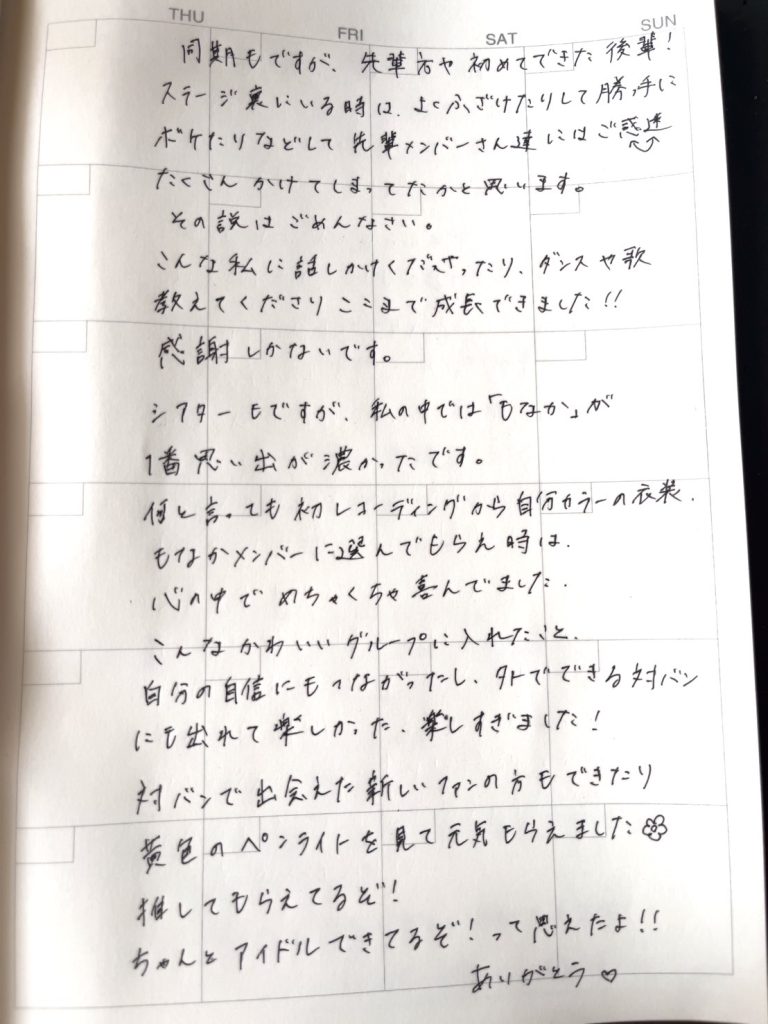 THU FRI SAT SUN
同期もですが、先輩方や初めてできた後輩!
ステージ裏にいる時は、よくふざけたりして勝手に
ボケたりなどして先輩メンバーさん達にはご惑迷
たくさんかけてしまってたかと思います。
その説はごめんなさい。
こんな私に話しかけくださったり、ダンスや歌
教えてくださりここまで成長できました!!
感謝しかないです。
シアターもですが、私の中では「もなか」が
1番思い出が濃かったです。
何と言っても初レコーディングから自分カラーの衣装、
もなかメンバーに選んでもらえ時は、
心の中でめちゃくちゃ喜んでました、
こんなかわいいグループに入れたこと、
自分の自信にもつながったし、外でできる対バン
にも出れて楽しかった、楽しすぎました!
対バンで出会えた新しいファンの方もできたり
黄色のペンライトを見て元気もらえました
推してもらえてるぞ!
ちゃんとアイドルできてるぞ!って思えたよ!!
ありがとう♡